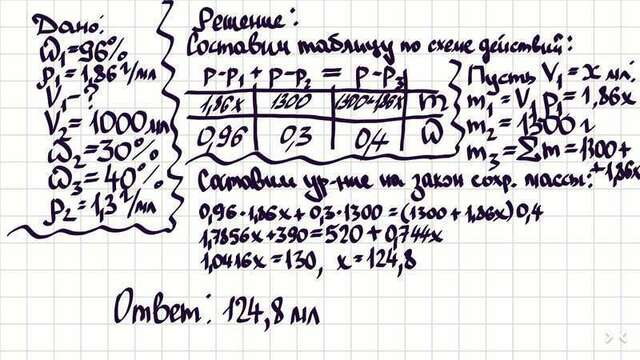 Дано:
ω₁=96%
ρ₁=1,86 г/мл
V₁-?
V₂=1000мл
ω₂=30%
ω₃=40%
ρ₂=1,3 г/мл
Решение:
Составим таблицу по схеме действий:
р-р₁+р-р₂=р-р₃
1,86x 1300 1300+1,86x m
0,96 0,3 0,4 ω
Пусть V₁=x мл.
m₁=V₁ρ₁=1,86x
m₂=1300 г
m₃=Σm=1300+
+1,86x
Составим ур-ние на закон сохр. массы:
0,96·1,86x+0,3·1300=(1300+1,86x)0,4
1,7856x+390=520+0,744x
1,0416x=130, x=124,8
Ответ: 124,8 мл